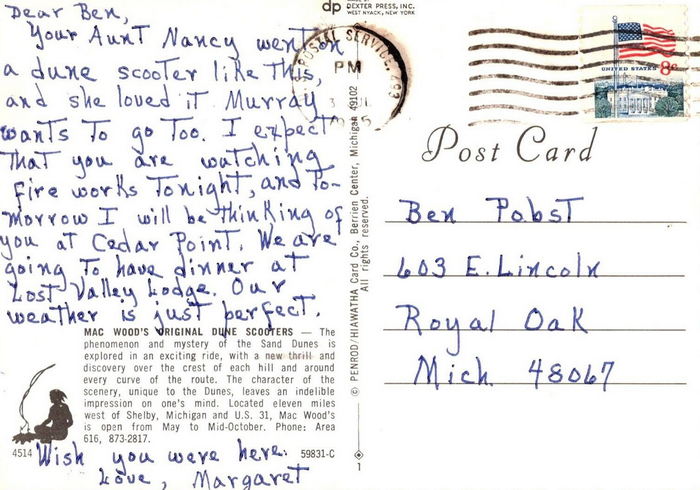 Dear Ben,
Your Aunt Nancy went on
a dune scooter like this,
and she loved it Murray
wants to go too. I expect
that you are watching
fire works tonight, and to-
morrow I will be thinking of
you at Cedar Point. We are
going to have dinner at
Lost Valley Lodge. Our
weather is just perfect.
MAC WOOD'S ORIGINAL DUNE SCOOTERS — The
phenomenon and mystery of the Sand Dunes is
explored in an exciting ride, with a new thrill and
discovery over the crest of each hill and around
every curve of the route. The character of the
scenery, unique to the Dunes, leaves an indelible
impression on one's mind. Located eleven miles
west of Shelby, Michigan and U.S. 31, Mac Wood's
is open from May to Mid-October. Phone: Area
616, 873-2817.
4514
59831-C
Wish you were here.
Love, Margaret
dp
DEXTER PRESS, INC.
WEST NYACK, NEW YORK
© PENROD/HIAWATHA Card Co., Berrien Center, Michigan 49102
All rights reserved.
1
POSTAL SERVICE,
PM
UNITED STATES 8c
Post Card
Ben Pobst
603 E. Lincoln
Royal Oak
Mich. 48067